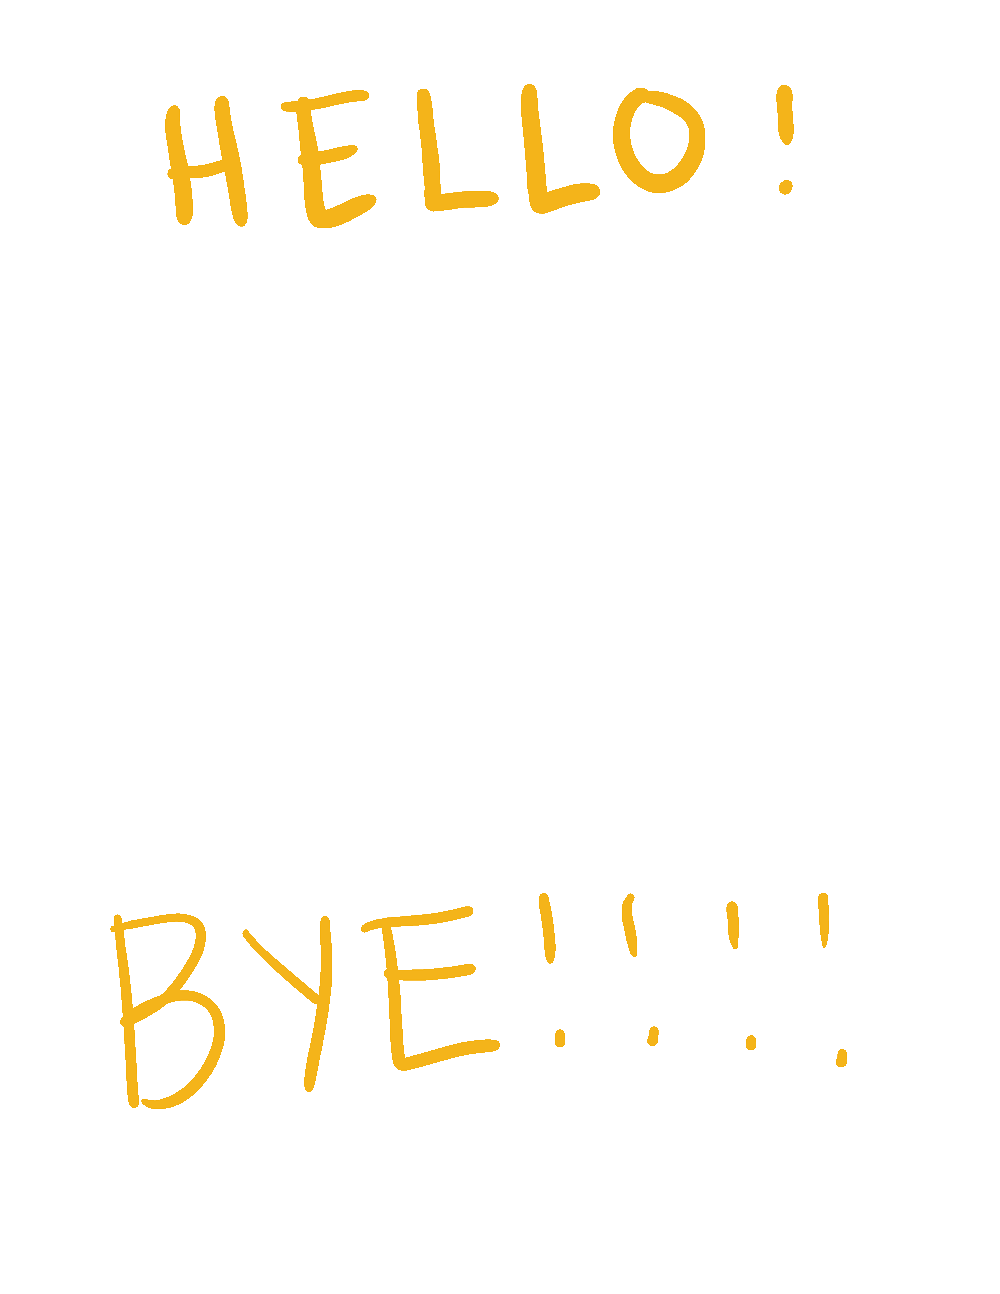 HELLO!
BYE!!!!